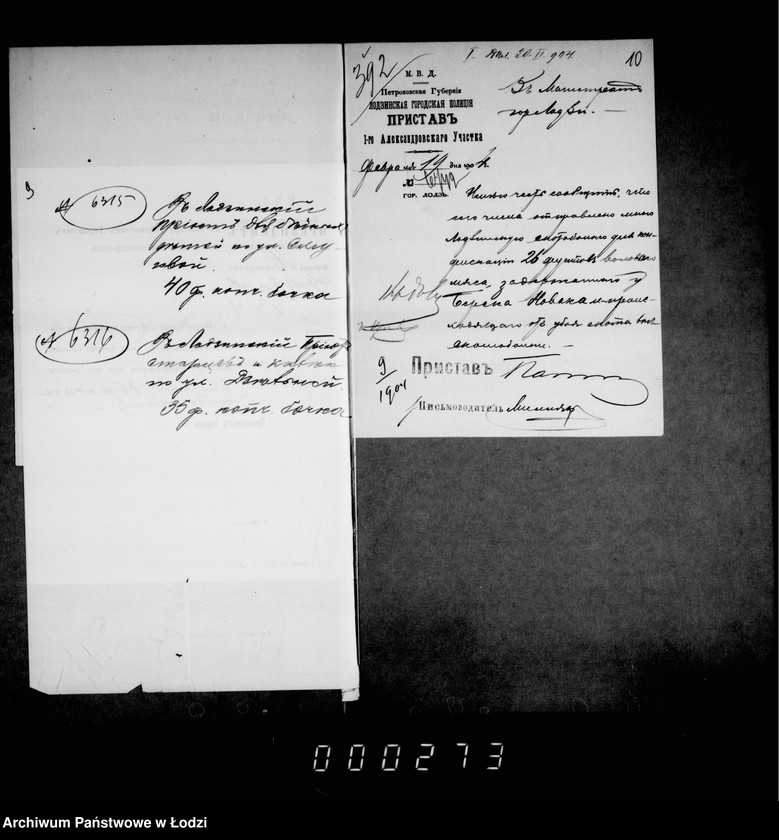 9
№ 6315
Въ Лодзинскій
пріютъ для бѣдныхъ
дѣтей по ул.
40 ф. копч. бочка
№ 6316
Въ Лодзинскій Пріютъ
старцевъ и калѣкъ
по ул. Дзѣльной.
35 ф. копч. бочка
392
I. 20. II. 904
10
М. В. Д.
Петроковская Губернія
ЛОДЗИНСКАЯ ГОРОДСКАЯ ПОЛИЦІЯ
ПРИСТАВЪ
1-го Александровскаго Участка
Февраля 19 дня 190 4
№
ГОР. ЛОДЗЬ
Въ Магистратъ
гор. Лодзи. —
Имѣю честь сообщить, что
сего числа отправлено мною
скотобойню для кон-
фискаціи 26 фунтовъ воловьяго
мяса, задержаннаго у
Берека Новака и проис-
ходящаго отъ убоя скота внѣ
скотобойни. —
9
1904
Приставъ
Письмоводитель
000273
Archiwum Państwowe w Łodzi